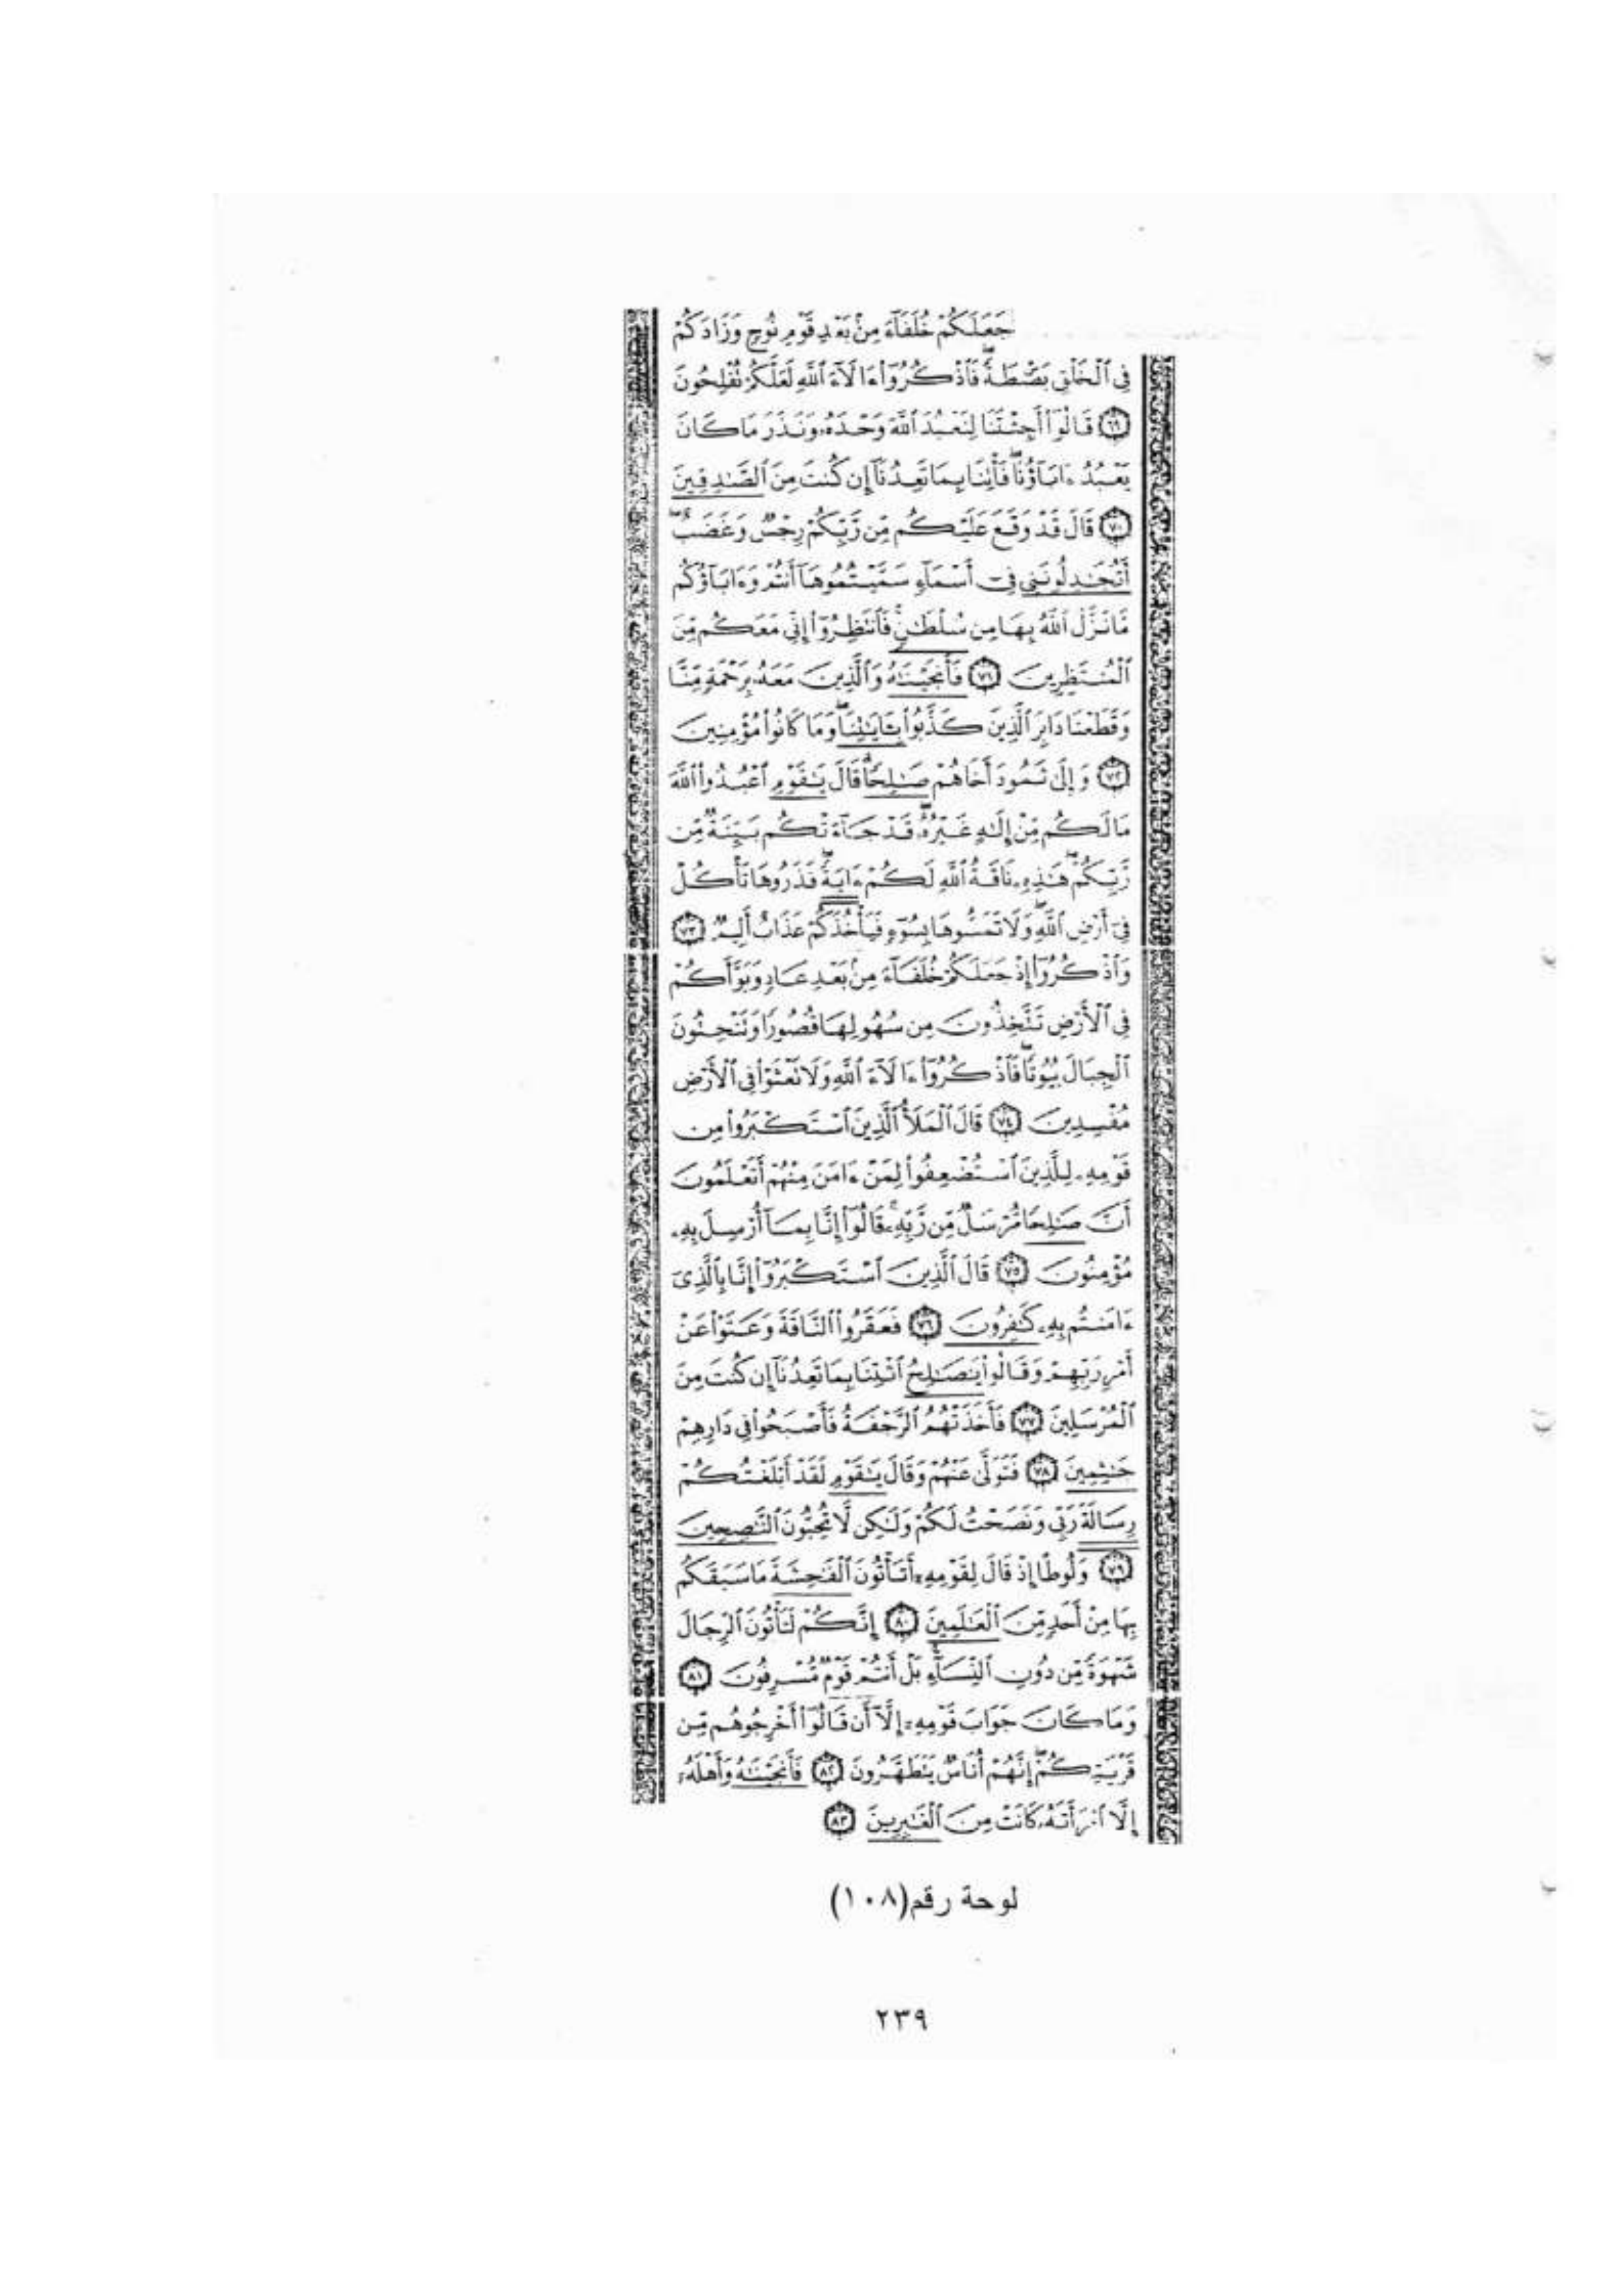 جَعَلَكُمْ خُلَفَآءَ مِنۢ بَعْدِ قَوْمِ نُوحٍ وَزَادَكُمْ
فِى ٱلْخَلْقِ بَصْۜطَةً ۖ فَٱذْكُرُوٓا۟ ءَالَآءَ ٱللَّهِ لَعَلَّكُمْ تُفْلِحُونَ
﴿٦٩﴾ قَالُوٓا۟ أَجِئْتَنَا لِنَعْبُدَ ٱللَّهَ وَحْدَهُۥ وَنَذَرَ مَا كَانَ
يَعْبُدُ ءَابَآؤُنَا ۖ فَأْتِنَا بِمَا تَعِدُنَآ إِن كُنتَ مِنَ ٱلصَّـٰدِقِينَ
﴿٧٠﴾ قَالَ قَدْ وَقَعَ عَلَيْكُم مِّن رَّبِّكُمْ رِجْسٌ وَغَضَبٌ ۖ
أَتُجَـٰدِلُونَنِى فِىٓ أَسْمَآءٍ سَمَّيْتُمُوهَآ أَنتُمْ وَءَابَآؤُكُم
مَّا نَزَّلَ ٱللَّهُ بِهَا مِن سُلْطَـٰنٍ ۚ فَٱنتَظِرُوٓا۟ إِنِّى مَعَكُم مِّنَ
ٱلْمُنتَظِرِينَ ﴿٧١﴾ فَأَنجَيْنَـٰهُ وَٱلَّذِينَ مَعَهُۥ بِرَحْمَةٍ مِّنَّا
وَقَطَعْنَا دَابِرَ ٱلَّذِينَ كَذَّبُوا۟ بِـَٔايَـٰتِنَا ۖ وَمَا كَانُوا۟ مُؤْمِنِينَ
﴿٧٢﴾ وَإِلَىٰ ثَمُودَ أَخَاهُمْ صَـٰلِحًا ۗ قَالَ يَـٰقَوْمِ ٱعْبُدُوا۟ ٱللَّهَ
مَا لَكُم مِّنْ إِلَـٰهٍ غَيْرُهُۥ ۖ قَدْ جَآءَتْكُم بَيِّنَةٌ مِّن
رَّبِّكُمْ ۖ هَـٰذِهِۦ نَاقَةُ ٱللَّهِ لَكُمْ ءَايَةً ۖ فَذَرُوهَا تَأْكُلْ
فِىٓ أَرْضِ ٱللَّهِ ۖ وَلَا تَمَسُّوهَا بِسُوٓءٍ فَيَأْخُذَكُمْ عَذَابٌ أَلِيمٌ ﴿٧٣﴾
وَٱذْكُرُوٓا۟ إِذْ جَعَلَكُمْ خُلَفَآءَ مِنۢ بَعْدِ عَادٍ وَبَوَّأَكُمْ
فِى ٱلْأَرْضِ تَتَّخِذُونَ مِن سُهُولِهَا قُصُورًا وَتَنْحِتُونَ
ٱلْجِبَالَ بُيُوتًا ۖ فَٱذْكُرُوٓا۟ ءَالَآءَ ٱللَّهِ وَلَا تَعْثَوْا۟ فِى ٱلْأَرْضِ
مُفْسِدِينَ ﴿٧٤﴾ قَالَ ٱلْمَلَأُ ٱلَّذِينَ ٱسْتَكْبَرُوا۟ مِن
قَوْمِهِۦ لِلَّذِينَ ٱسْتُضْعِفُوا۟ لِمَنْ ءَامَنَ مِنْهُمْ أَتَعْلَمُونَ
أَنَّ صَـٰلِحًا مُّرْسَلٌ مِّن رَّبِّهِۦ ۚ قَالُوٓا۟ إِنَّا بِمَآ أُرْسِلَ بِهِۦ
مُؤْمِنُونَ ﴿٧٥﴾ قَالَ ٱلَّذِينَ ٱسْتَكْبَرُوٓا۟ إِنَّا بِٱلَّذِىٓ
ءَامَنتُم بِهِۦ كَـٰفِرُونَ ﴿٧٦﴾ فَعَقَرُوا۟ ٱلنَّاقَةَ وَعَتَوْا۟ عَنْ
أَمْرِ رَبِّهِمْ وَقَالُوا۟ يَـٰصَـٰلِحُ ٱئْتِنَا بِمَا تَعِدُنَآ إِن كُنتَ مِنَ
ٱلْمُرْسَلِينَ ﴿٧٧﴾ فَأَخَذَتْهُمُ ٱلرَّجْفَةُ فَأَصْبَحُوا۟ فِى دَارِهِمْ
جَـٰثِمِينَ ﴿٧٨﴾ فَتَوَلَّىٰ عَنْهُمْ وَقَالَ يَـٰقَوْمِ لَقَدْ أَبْلَغْتُكُمْ
رِسَالَةَ رَبِّى وَنَصَحْتُ لَكُمْ وَلَـٰكِن لَّا تُحِبُّونَ ٱلنَّـٰصِحِينَ
﴿٧٩﴾ وَلُوطًا إِذْ قَالَ لِقَوْمِهِۦٓ أَتَأْتُونَ ٱلْفَـٰحِشَةَ مَا سَبَقَكُم
بِهَا مِنْ أَحَدٍ مِّنَ ٱلْعَـٰلَمِينَ ﴿٨٠﴾ إِنَّكُمْ لَتَأْتُونَ ٱلرِّجَالَ
شَهْوَةً مِّن دُونِ ٱلنِّسَآءِ ۚ بَلْ أَنتُمْ قَوْمٌ مُّسْرِفُونَ ﴿٨١﴾
وَمَا كَانَ جَوَابَ قَوْمِهِۦٓ إِلَّآ أَن قَالُوٓا۟ أَخْرِجُوهُم مِّن
قَرْيَتِكُمْ ۖ إِنَّهُمْ أُنَاسٌ يَتَطَهَّرُونَ ﴿٨٢﴾ فَأَنجَيْنَـٰهُ وَأَهْلَهُۥٓ
إِلَّا ٱمْرَأَتَهُۥ كَانَتْ مِنَ ٱلْغَـٰبِرِينَ ﴿٨٣﴾
لوحة رقم(١٠٨)
٢٣٩